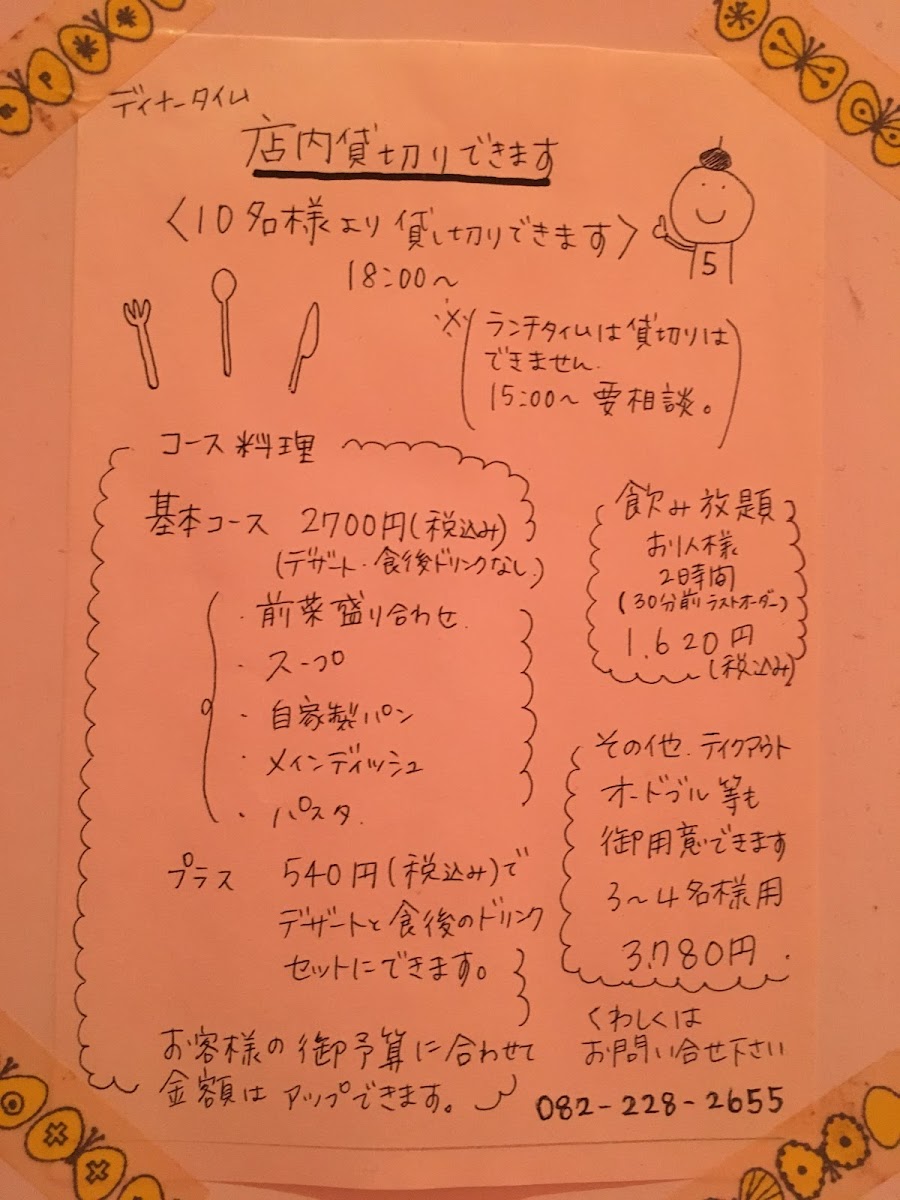 ディナータイム
店内貸切りできます
〈10名様より貸し切りできます〉
18:00〜
15
※(ランチタイムは貸切りは
できません.
15:00〜要相談。)
コース料理
基本コース 2700円(税込み)
(デザート・食後ドリンクなし)
・前菜盛り合わせ.
・スープ
・自家製パン
・メインディッシュ
・パスタ.
プラス 540円(税込み)で
デザートと食後のドリンク
セットにできます。
お客様の御予算に合わせて
金額はアップできます。
飲み放題
お1人様
2時間
(30分前ラストオーダー)
1.620円
(税込み)
その他.テイクアウト
オードブル等も
御用意できます
3〜4名様用
3.780円.
くわしくは
お問い合せ下さい
082-228-2655